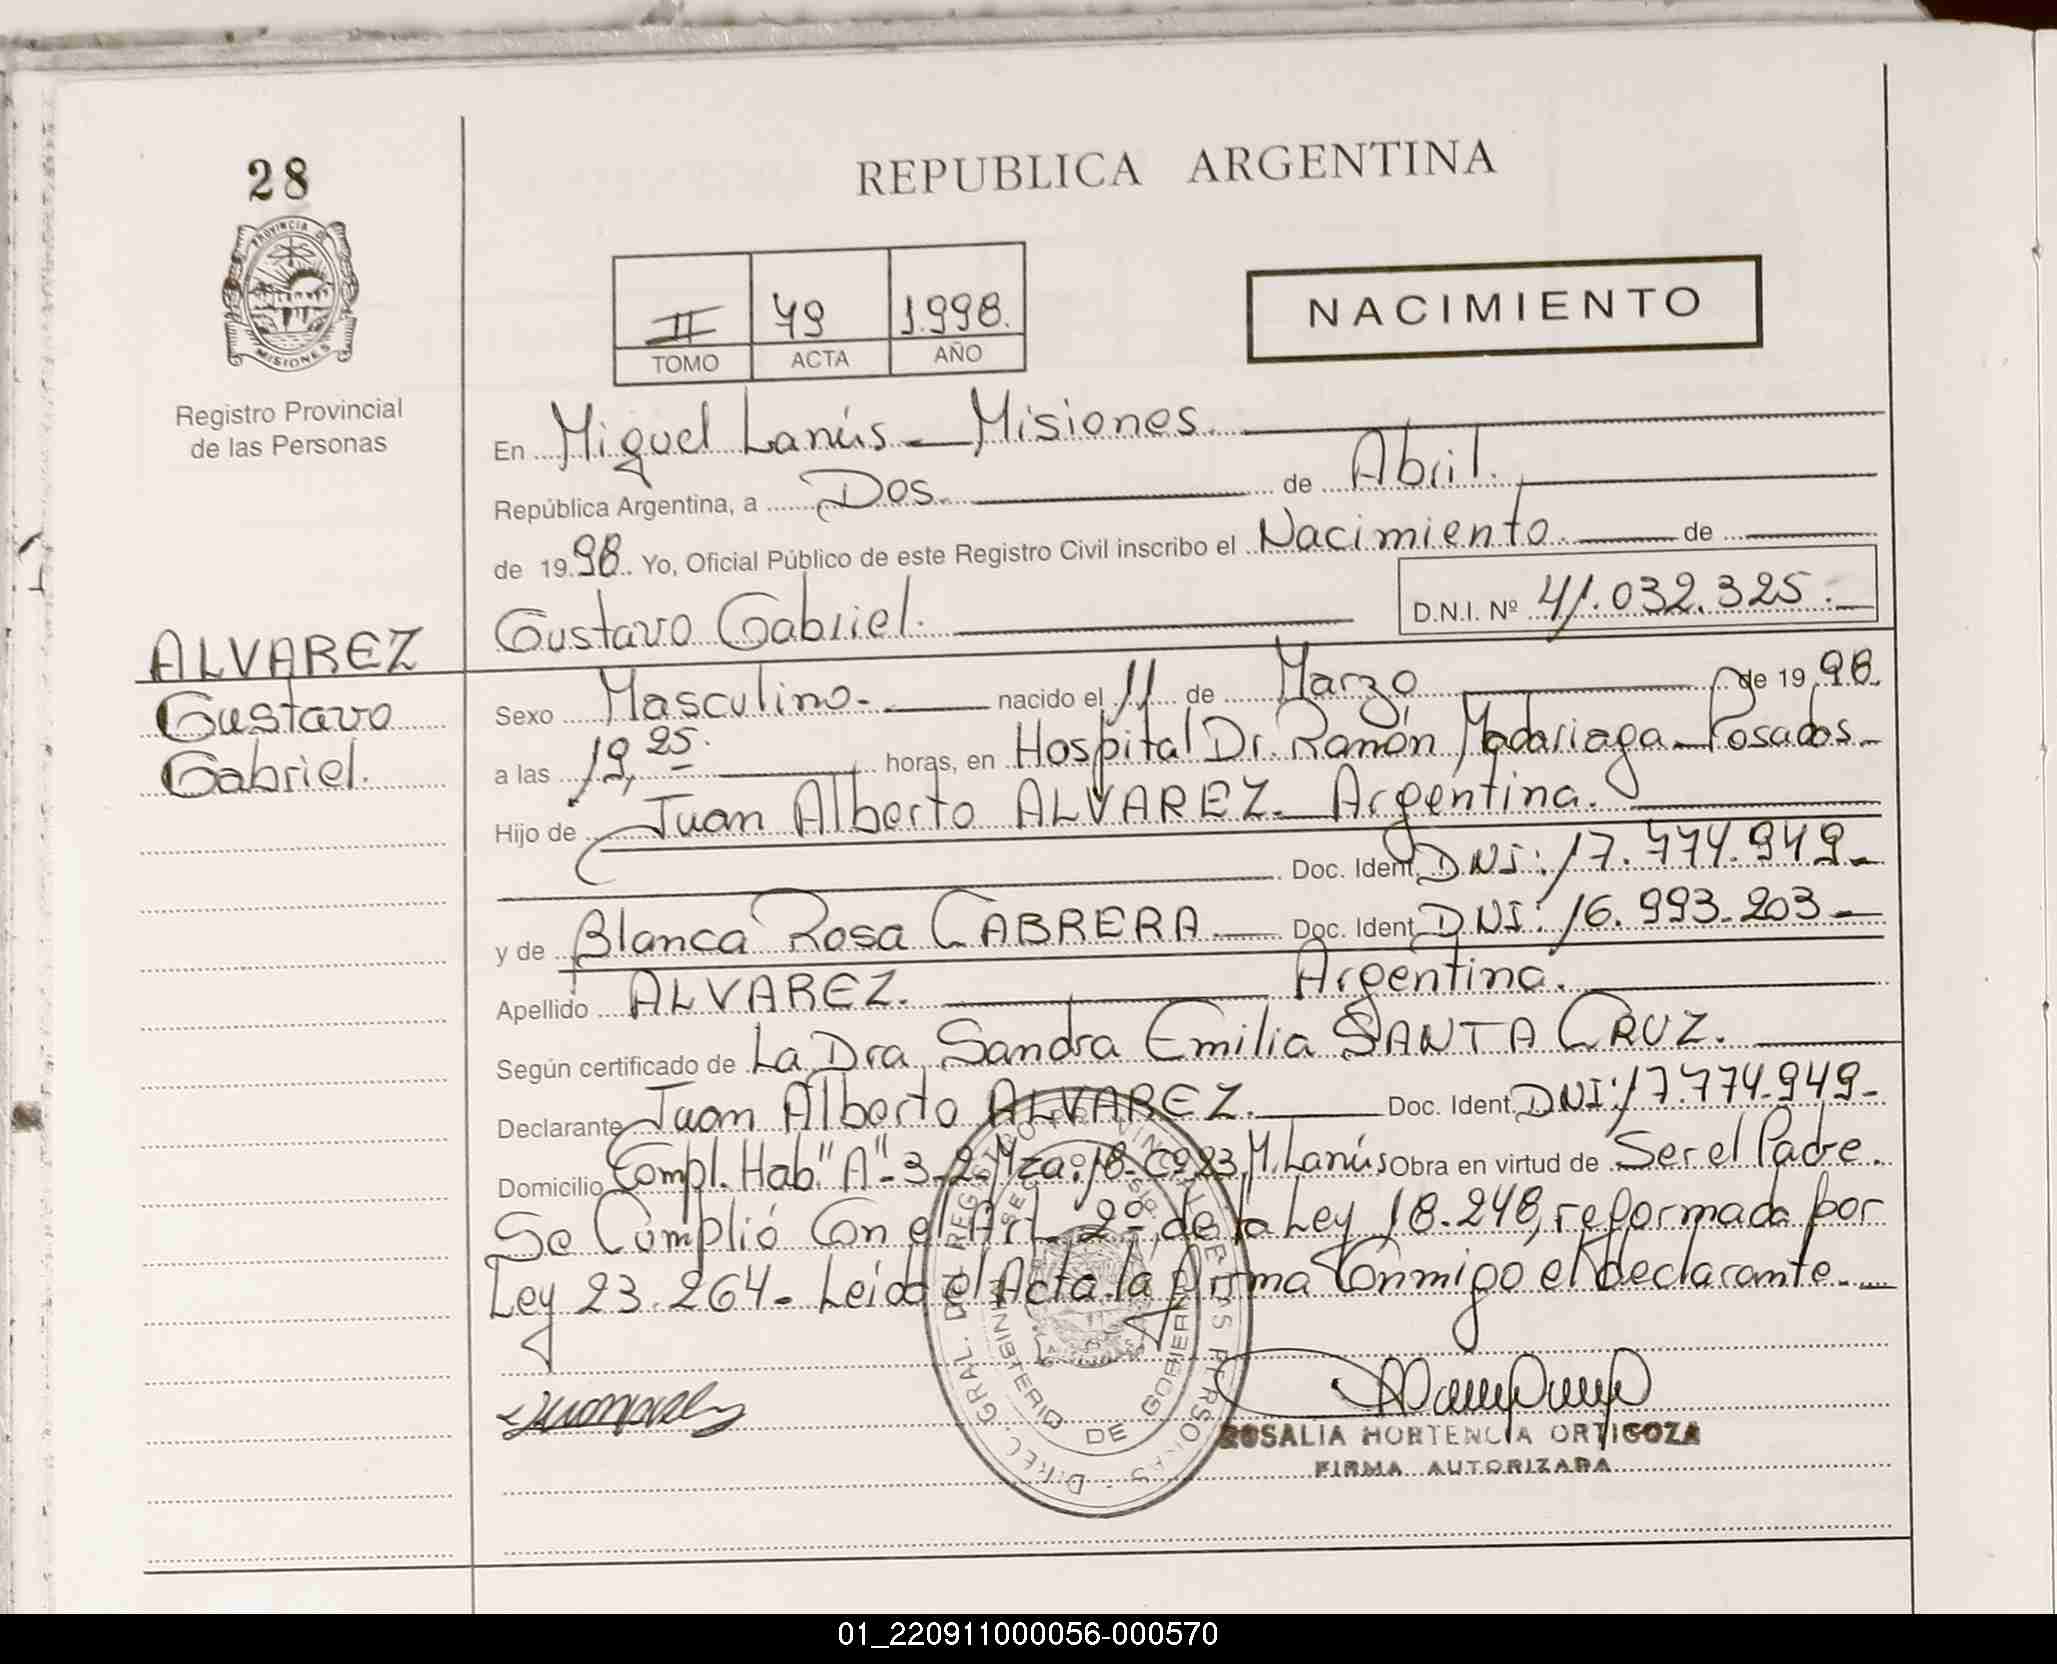 28
REPUBLICA ARGENTINA
PROVINCIA DE
MISIONES
Registro Provincial
de las Personas
II 49 1.998.
TOMO ACTA AÑO
NACIMIENTO
En Miguel Lanús - Misiones.
República Argentina, a Dos. de Abril.
de 1998. Yo, Oficial Público de este Registro Civil inscribo el Nacimiento de
Gustavo Gabriel. D.N.I. Nº 41.032.325.-
ALVAREZ
Gustavo
Gabriel.
Sexo Masculino.- nacido el 11 de Marzo de 1998.
a las 19,25. horas, en Hospital Dr. Ramón Madariaga - Posadas -
Hijo de Juan Alberto ALVAREZ. Argentina.
Doc. Ident. DNI: 17.774.949-
y de Blanca Rosa CABRERA. Doc. Ident. DNI: 16.993.203-
Apellido ALVAREZ. Argentina.
Según certificado de La Dra. Sandra Emilia SANTA CRUZ.
Declarante Juan Alberto ALVAREZ. Doc. Ident. DNI: 17.774.949-
Domicilio Compl. Hab. "A"- 3-2-Mza. 18- Cº 23, M. Lanús Obra en virtud de Ser el Padre.
Se Cumplió Con el Art. 2º de la Ley 18.248, reformada por
Ley 23.264- Leida el Acta la firma Conmigo el declarante.
DIREC. GRAL. DEL REGISTRO PROVINCIAL DE LAS PERSONAS
MINISTERIO DE GOBIERNO
ROSALIA HORTENCIA ORTIGOZA
FIRMA AUTORIZADA
01_220911000056-000570